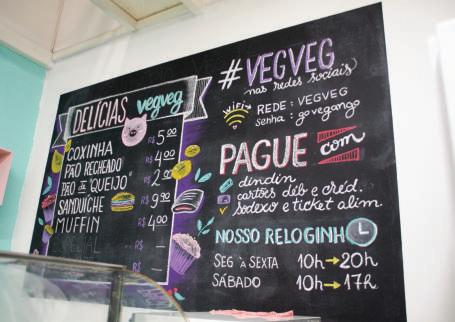 DELÍCIAS vegveg
COXINHA R$ 5,00
PÃO RECHEADO R$ 4,00
PÃO DE "QUEIJO" R$ 2,00
SANDUÍCHE R$ 9,90
MUFFIN R$ 4,00
R$ —
R$ —
vegveg
#VEGVEG
nas redes sociais
wifi
REDE : VEGVEG
senha : govegango
PAGUE com
dindin
cartões déb e créd.
sodexo e ticket alim.
NOSSO RELOGINHO
SEG À SEXTA 10h → 20h
SÁBADO 10h → 17h